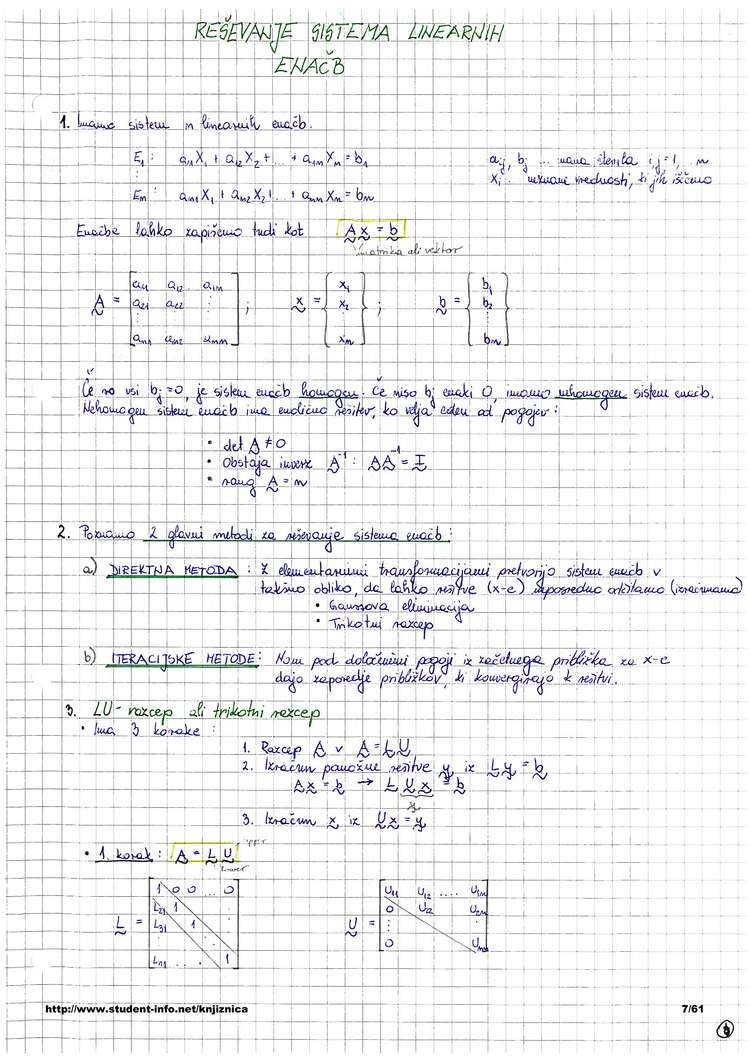 REŠEVANJE SISTEMA LINEARNIH
ENAČB
1. Imamo sistem n linearnih enačb.
E₁ : a₁₁X₁ + a₁₂X₂ + ... + a₁ₙXₙ = b₁
aᵢⱼ, bⱼ ... znana števila i,j = 1, .. n
⋮
Xᵢ .. neznane vrednosti, ki jih iščemo
Eₙ : aₙ₁X₁ + aₙ₂X₂ + ... + aₙₙXₙ = bₙ
Enačbe lahko zapišemo tudi kot A x = b
matrika ali vektor
A = [a₁₁ a₁₂ .. a₁ₙ ; x = { x₁ ; b = { b₁
a₂₁ a₂₂ ⋮ x₂ b₂
⋮ ⋮ ⋮
aₙ₁ aₙ₂ aₙₙ] xₙ } bₙ }
Če so vsi bⱼ = 0, je sistem enačb homogen. Če niso bⱼ enaki 0, imamo nehomogen sistem enačb.
Nehomogen sistem enačb ima enolično rešitev, ko velja eden od pogojev:
• det A ≠ 0
• Obstaja inverz A⁻¹ : AA⁻¹ = I
• rang A = n
2. Poznamo 2 glavni metodi za reševanje sistema enačb:
a) DIREKTNA METODA : Z elementarnimi transformacijami pretvorijo sistem enačb v
takšno obliko, da lahko rešitve (x-e) neposredno odčitamo (izračunamo)
• Gaussova eliminacija
• Trikotni razcep
b) ITERACIJSKE METODE: Nam pod določenimi pogoji iz začetnega približka za x-e
dajo zaporedje približkov, ki konvergirajo k rešitvi.
3. LU-razcep ali trikotni razcep
• Ima 3 korake :
1. Razcep A v A = L U
2. Izračun pomožne rešitve y iz L y = b
A x = b → L U x = b
y
3. Izračun x iz U x = y
upper
• 1. korak : A = L U
lower
L = [1 0 0 ... 0 U = [U₁₁ U₁₂ .... U₁ₙ
L₂₁ 1 ⋮ 0 U₂₂ U₂ₙ
L₃₁ 1 ⋮ ⋮
Lₙ₁ . . . 1] 0 Uₙₙ]
http://www.student-info.net/knjiznica
7/61